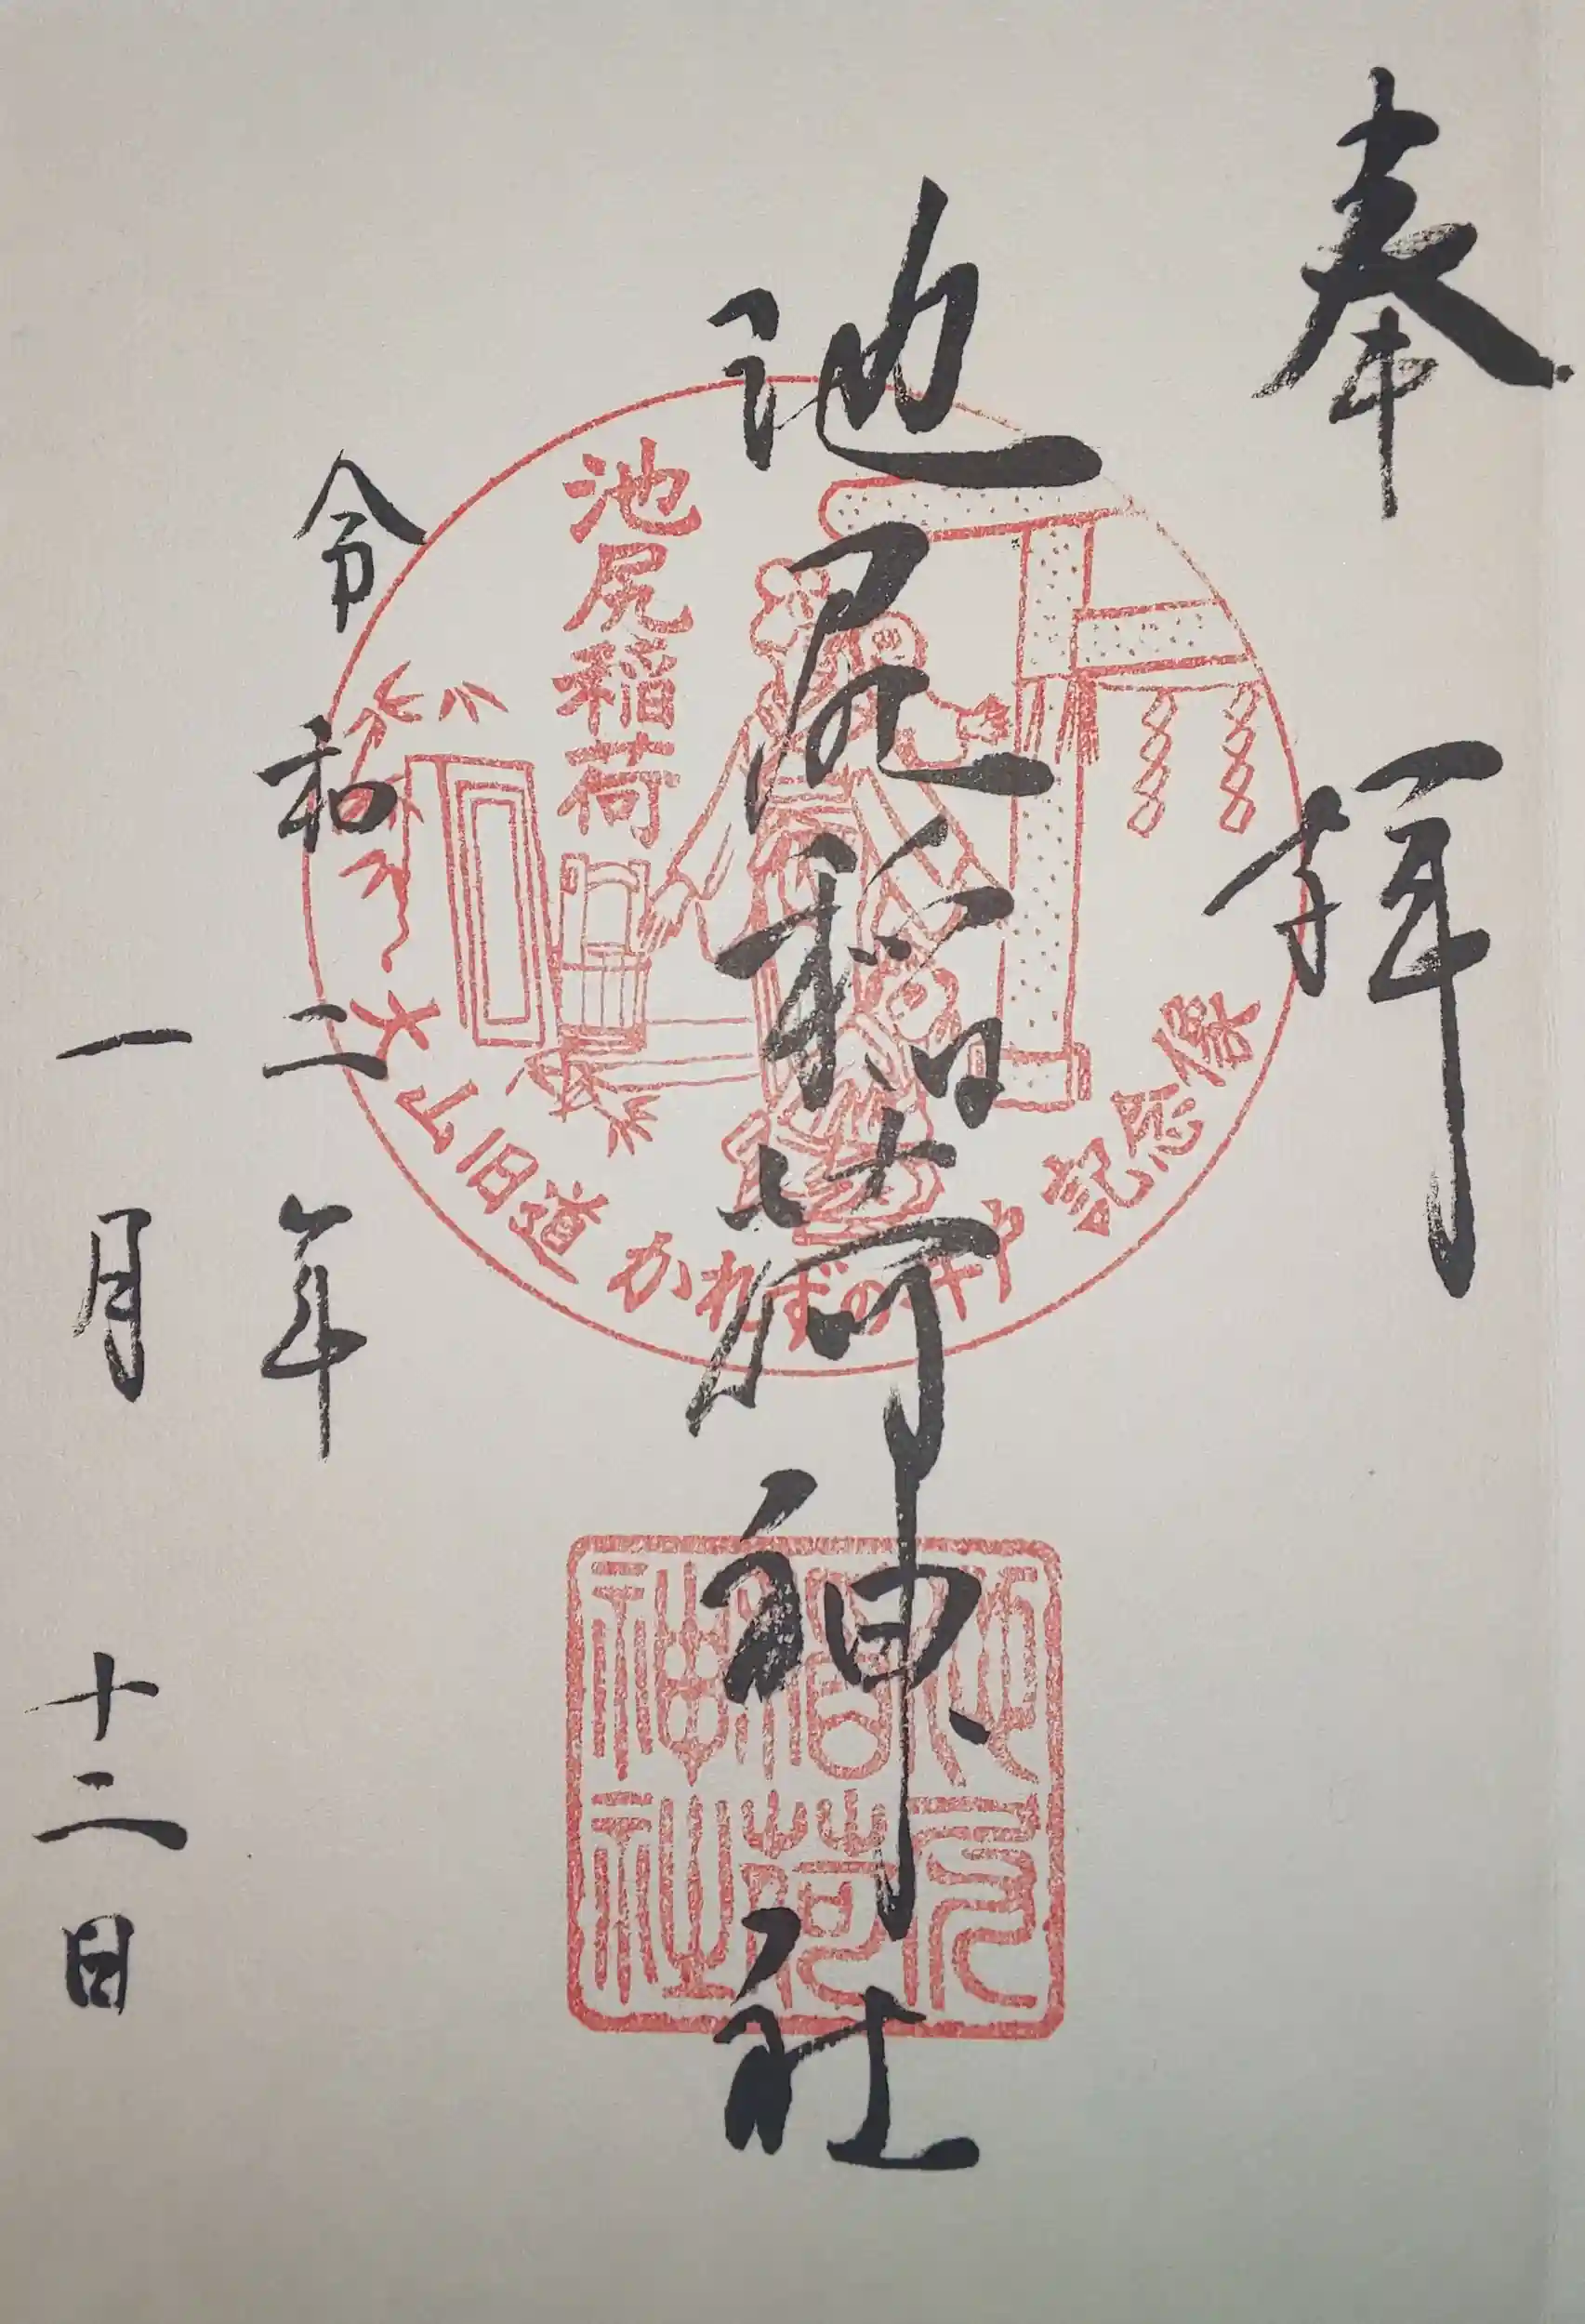 奉拝
池尻稲荷神社
令和二年
一月十二日
池尻稲荷
大山旧道 かれずの井戸 記念像
池尻
稲荷
神社